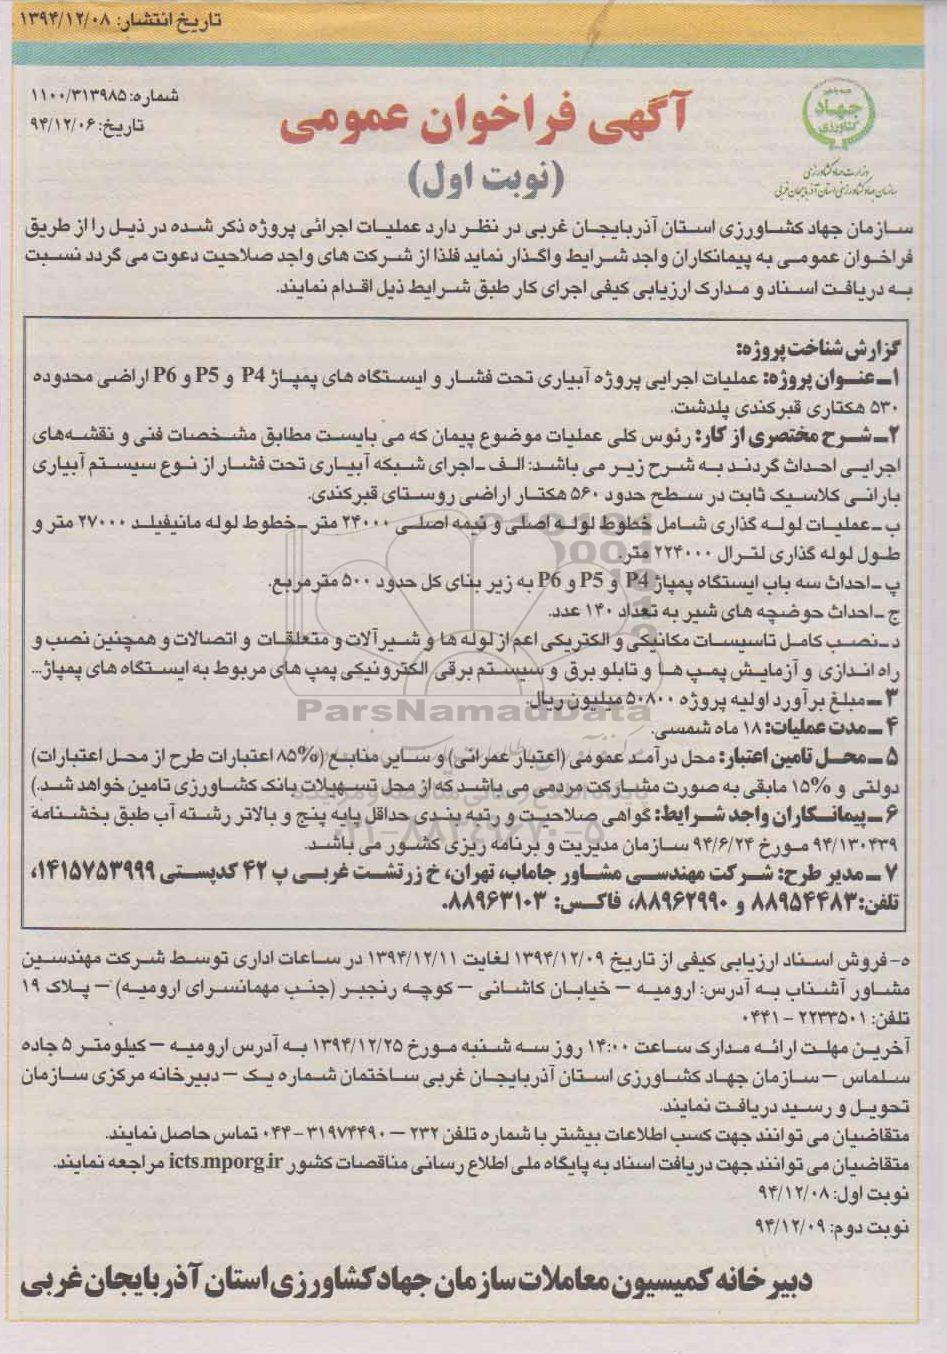 تاریخ انتشار: ۱۳۹۴/۱۲/۰۸
شماره: ۱۱۰۰/۳۱۳۹۸۵
تاریخ: ۹۴/۱۲/۰۶
جهاد کشاورزی
وزارت جهاد کشاورزی
سازمان جهاد کشاورزی استان آذربایجان غربی
آگهی فراخوان عمومی
(نوبت اول)
سازمان جهاد کشاورزی استان آذربایجان غربی در نظر دارد عملیات اجرائی پروژه ذکر شده در ذیل را از طریق
فراخوان عمومی به پیمانکاران واجد شرایط واگذار نماید فلذا از شرکت های واجد صلاحیت دعوت می گردد نسبت
به دریافت اسناد و مدارک ارزیابی کیفی اجرای کار طبق شرایط ذیل اقدام نمایند.
گزارش شناخت پروژه:
۱ـ عنوان پروژه: عملیات اجرایی پروژه آبیاری تحت فشار و ایستگاه های پمپاژ P4 و P5 و P6 اراضی محدوده
۵۳۰ هکتاری قبرکندی پلدشت.
۲ـ شرح مختصری از کار: رئوس کلی عملیات موضوع پیمان که می بایست مطابق مشخصات فنی و نقشه‌های
اجرایی احداث گردند به شرح زیر می باشد: الف ـ اجرای شبکه آبیاری تحت فشار از نوع سیستم آبیاری
بارانی کلاسیک ثابت در سطح حدود ۵۶۰ هکتار اراضی روستای قبرکندی.
ب ـ عملیات لوله گذاری شامل خطوط لوله اصلی و نیمه اصلی ۲۴۰۰۰ متر ـ خطوط لوله مانیفیلد ۲۷۰۰۰ متر و
طول لوله گذاری لترال ۲۲۴۰۰۰ متر.
پ ـ احداث سه باب ایستگاه پمپاژ P4 و P5 و P6 به زیر بنای کل حدود ۵۰۰ مترمربع.
ج ـ احداث حوضچه های شیر به تعداد ۱۴۰ عدد.
د ـ نصب کامل تاسیسات مکانیکی و الکتریکی اعم از لوله ها و شیرآلات و متعلقات و اتصالات و همچنین نصب و
راه اندازی و آزمایش پمپ ها و تابلو برق و سیستم برقی الکترونیکی پمپ های مربوط به ایستگاه های پمپاژ...
۳ ـ مبلغ برآورد اولیه پروژه ۵۰۸۰۰ میلیون ریال.
۴ ـ مدت عملیات: ۱۸ ماه شمسی.
۵ ـ محل تامین اعتبار: محل درآمد عمومی (اعتبار عمرانی) و سایر منابع (۸۵% اعتبارات طرح از محل اعتبارات)
دولتی و ۱۵% مابقی به صورت مشارکت مردمی می باشد که از محل تسهیلات بانک کشاورزی تامین خواهد شد.)
۶ ـ پیمانکاران واجد شرایط: گواهی صلاحیت و رتبه بندی حداقل پایه پنج و بالاتر رشته آب طبق بخشنامه
۹۴/۱۳۰۴۳۹ مورخ ۹۴/۶/۲۴ سازمان مدیریت و برنامه ریزی کشور می باشد.
۷ ـ مدیر طرح: شرکت مهندسی مشاور جاماب، تهران، خ زرتشت غربی پ ۴۲ کدپستی ۱۴۱۵۷۵۳۹۹۹،
تلفن: ۸۸۹۵۴۴۸۳ و ۸۸۹۶۲۹۹۰، فاکس: ۸۸۹۶۳۱۰۳.
ParsNamadData
۰۲۱-۸۸۳۴۹۶۷۰-۵
ه- فروش اسناد ارزیابی کیفی از تاریخ ۱۳۹۴/۱۲/۰۹ لغایت ۱۳۹۴/۱۲/۱۱ در ساعات اداری توسط شرکت مهندسین
مشاور آشناب به آدرس: ارومیه – خیابان کاشانی – کوچه رنجبر (جنب مهمانسرای ارومیه) – پلاک ۱۹
تلفن: ۲۲۳۳۵۰۱ – ۰۴۴۱
آخرین مهلت ارائه مدارک ساعت ۱۴:۰۰ روز سه شنبه مورخ ۱۳۹۴/۱۲/۲۵ به آدرس ارومیه – کیلومتر ۵ جاده
سلماس – سازمان جهاد کشاورزی استان آذربایجان غربی ساختمان شماره یک – دبیرخانه مرکزی سازمان
تحویل و رسید دریافت نمایند.
متقاضیان می توانند جهت کسب اطلاعات بیشتر با شماره تلفن ۲۳۲ – ۳۱۹۷۴۴۹۰-۰۴۴ تماس حاصل نمایند.
متقاضیان می توانند جهت دریافت اسناد به پایگاه ملی اطلاع رسانی مناقصات کشور icts.mporg.ir مراجعه نمایند.
نوبت اول: ۹۴/۱۲/۰۸
نوبت دوم: ۹۴/۱۲/۰۹
دبیرخانه کمیسیون معاملات سازمان جهاد کشاورزی استان آذربایجان غربی